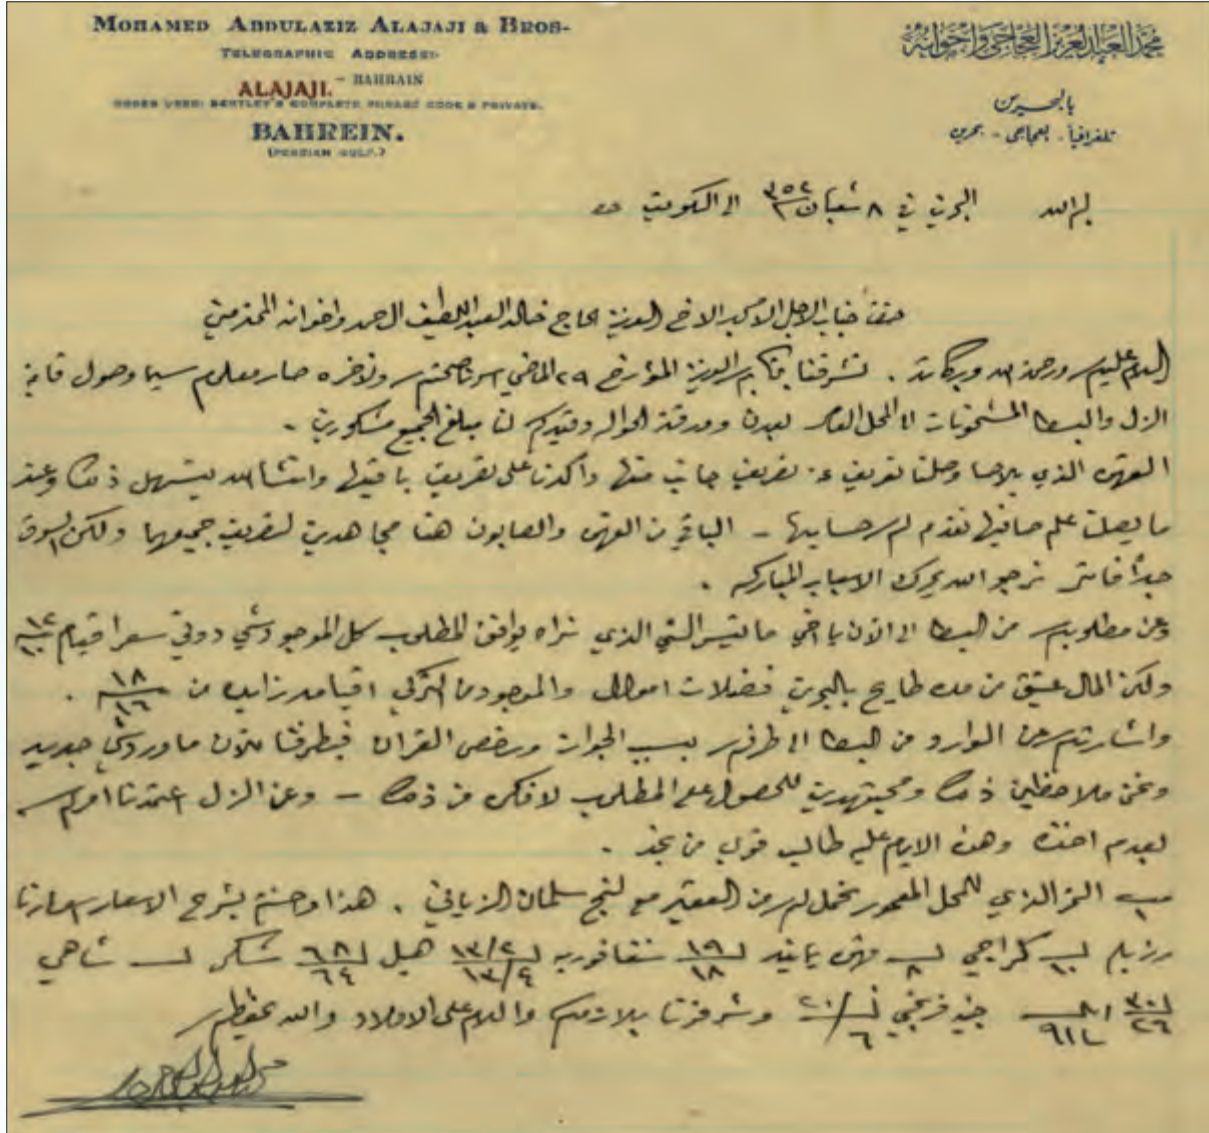 MOHAMED ABDULAZIZ ALAJAJI & BROS-
TELEGRAPHIC ADDRESS:-
ALAJAJI. - BAHRAIN
CODES USED: BENTLEY'S COMPLETE PHRASE CODE & PRIVATE.
BAHREIN.
(PERSIAN GULF.)
محمد العبد العزيز العجاجي واخوانه
بالبحرين
تلغرافياً - لعجاجي - بحرين
بسم الله البحرين في ٨ شعبان ٣٥٢ الى الكويت
جناب الاجل الامجد الافخم العزيز الحاج خالد العبد اللطيف الحمد واخوانه المحترمين
السلام عليكم ورحمة الله وبركاته . تشرفنا بكتابكم العزيز المؤرخ ٢٩ الماضي سرنا صحتكم وما ذكره صار معلوم سيما وصول قايمة
الزل والبسط المشحونات الى المحل لعدن ومعرفة الحوال وقيدكم لنا مبلغ الجميع مشكورين -
القهوة الذي بالحسا وصلنا تعريف عن تصريف جانب منها واكدنا على تصريف باقيها وانشاالله يتسهل ذلك وعند
ما يصلنا علم صافيها نقدم لكم حسابها - الباقي من القهوة والصابون هنا مجاهدين لتصريف جميعها ولكن السوق
جداً فاتر نرجو الله يحرك الاسباب المباركه .
وعن مطلوبكم من البسط الى الآن ياخي ما تيسر الشي الذي نراه يوافق المطلوب كل الموجود شي دوني سعر اقيام
ولكن المال عتيق من مده طايح بالبحرين فضلات اموال والموجود من التركي اقيامه زايده من ١٨ ١٦ .
واشارتكم عن الوارد من البسط الى طرفكم بسبب الجوازات ورخص القران فبطرفنا للآن ما ورد شي جديد
ونحن ملاحظين ذلك ومجتهدين للحصول على المطلوب لا فكر من ذلك - وعن الزل اعتمدنا امركم
بعدم اخذه وهذه الايام عليه طالب قوي من نجد .
التمر الذي للمحل المعمور نحمل لهم من العقير مع لنج سلمان الزياني . هذا وحسبتم بشرح الاسعار اسعارنا
رز كراجي ٨ ١٩ ١٨ سنقافوريه ١٣/٢ ١٣/٤ هيل ٦٨ ٦٤ شكر شاهي
٣٠ ٢٦ جنيه فرنجي ٢٠/٦ وشرفونا بلازمكم والسلام على الاولاد والله يحفظكم